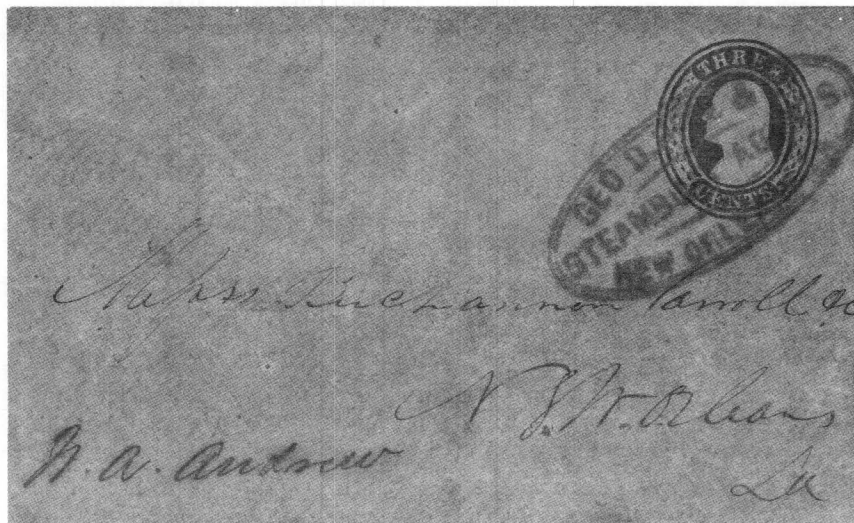 THREE
CENTS
GEO D.
STEAMB
NEW ORL
Messrs Buchannon Carroll &
N. W. Orleans
La
W. A. Andrew